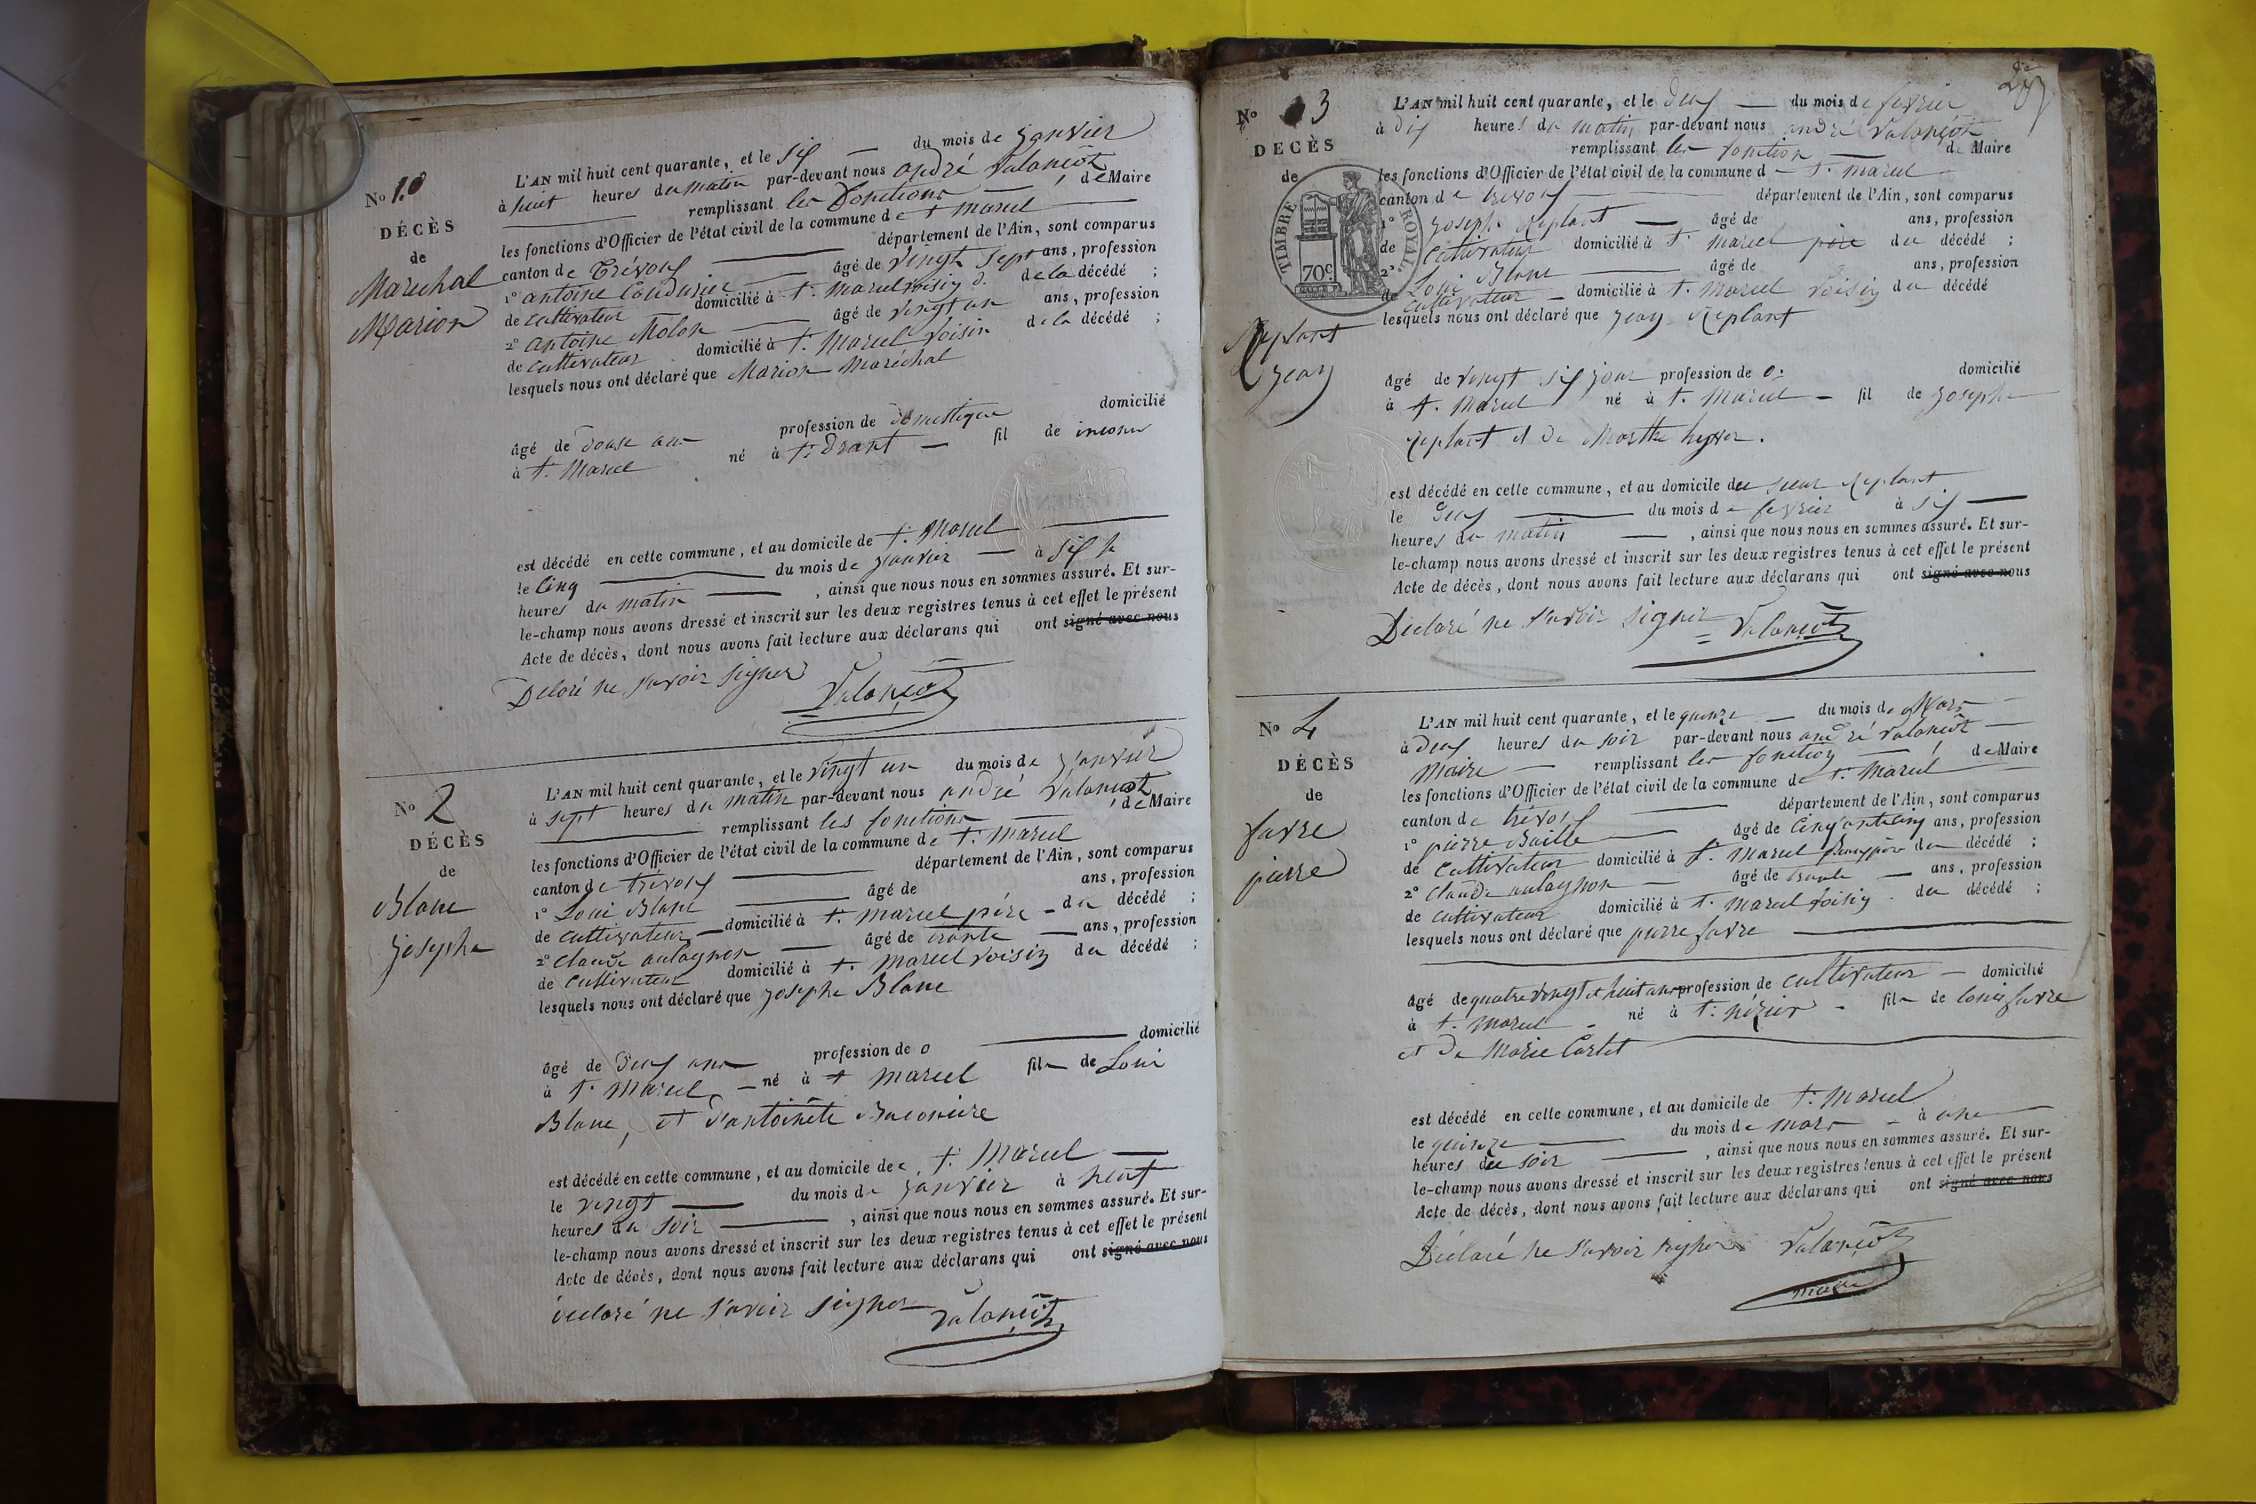 No 1.
DÉCÈS
de
Marechal
Marion
L'AN mil huit cent quarante, et le six du mois de janvier
à huit heures du matin par-devant nous andré Valançot
remplissant les fonctions de Maire
les fonctions d'Officier de l'état civil de la commune de St marcel
canton de Trévoux département de l'Ain, sont comparus
1° antoine Coudurier âgé de vingt sept ans, profession
de cultivateur domicilié à St. marcel voisin d. de la décédé ;
2° antoine Molon âgé de vingt un ans, profession
de cultivateur domicilié à St. Marcel voisin de la décédé ;
lesquels nous ont déclaré que Marion Maréchal
âgé de douse ans profession de domestique domicilié
à St. Marcel né à St. Drant fil de inconu
est décédé en cette commune, et au domicile de St. Marcel
le Cinq du mois de janvier à six h
heures du matin , ainsi que nous nous en sommes assuré. Et sur-
le-champ nous avons dressé et inscrit sur les deux registres tenus à cet effet le présent
Acte de décès, dont nous avons fait lecture aux déclarans qui ont signé avec nous
Deloré ne savoir signer Valançot
No 2
DÉCÈS
de
Blanc
Josephe
L'AN mil huit cent quarante, et le vingt un du mois de janvier
à sept heures du matin par-devant nous andré Valançot
remplissant les fonctions de Maire
les fonctions d'Officier de l'état civil de la commune de St. marcel
canton de trévoux département de l'Ain, sont comparus
1° Loui Blanc âgé de ans, profession
de cultivateur domicilié à St. marcel père du décédé ;
2° claude aulagnon âgé de trante ans, profession
de Cultivateur domicilié à St. marcel voisin du décédé ;
lesquels nous ont déclaré que josephe Blanc
âgé de deux ans profession de 0 domicilié
à St. Marcel né à St marcel fils de Loui
Blanc, et d'antoinete Baconiere
est décédé en cette commune, et au domicile de St. Marcel
le vingt du mois de janvier à neuf
heures du soir , ainsi que nous nous en sommes assuré. Et sur-
le-champ nous avons dressé et inscrit sur les deux registres tenus à cet effet le présent
Acte de décès, dont nous avons fait lecture aux déclarans qui ont signé avec nous
déclaré ne savoir signer Valançot
No 3
DECÈS
de
TIMBRE ROYAL
70c.
Replant
jean
L'AN mil huit cent quarante, et le deux du mois de fevrier
à dix heures du matin par-devant nous andré Valançot
remplissant les fonction de Maire
les fonctions d'Officier de l'état civil de la commune d St. marcel
canton de trevoux département de l'Ain, sont comparus
1° joseph Replant âgé de ans, profession
de Cultivateur domicilié à St. marcel père du décédé ;
2° Loui Blanc âgé de ans, profession
de cultivateur domicilié à St. Marcel voisin du décédé
lesquels nous ont déclaré que jean Replant
âgé de vingt six jour profession de 0. domicilié
à St. Marcel né à St. Marcel fil de josephe
Replant et de Marthe
est décédé en cette commune, et au domicile du sieur Replant
le deux du mois de fevrier à six
heures du matin , ainsi que nous nous en sommes assuré. Et sur-
le-champ nous avons dressé et inscrit sur les deux registres tenus à cet effet le présent
Acte de décès, dont nous avons fait lecture aux déclarans qui ont signé avec nous
Déclaré ne savoir signer Valançot
No 4
DÉCÈS
de
favre
pierre
L'AN mil huit cent quarante, et le quinze du mois de Mars
à deux heures du soir par-devant nous andré valançot
Maire remplissant les fonction de Maire
les fonctions d'Officier de l'état civil de la commune de St. Marcel
canton de trévoux département de l'Ain, sont comparus
1° pierre Baille âgé de Cinquante ans, profession
de Cultivateur domicilié à St. Marcel du décédé ;
2° Claude aulagnon âgé de trante ans, profession
de cultivateur domicilié à St. marcel voisin du décédé ;
lesquels nous ont déclaré que pierre favre
âgé de quatre vingt et huit ans profession de cultivateur domicilié
à St. Marcel né à St. nizier fils de louis favre
et de Marie Cartet
est décédé en cette commune, et au domicile de St. Marcel
le quinze du mois de mars à une
heures du soir , ainsi que nous nous en sommes assuré. Et sur-
le-champ nous avons dressé et inscrit sur les deux registres tenus à cet effet le présent
Acte de décès, dont nous avons fait lecture aux déclarans qui ont signé avec nous
Déclaré ne savoir signer Valançot
maire